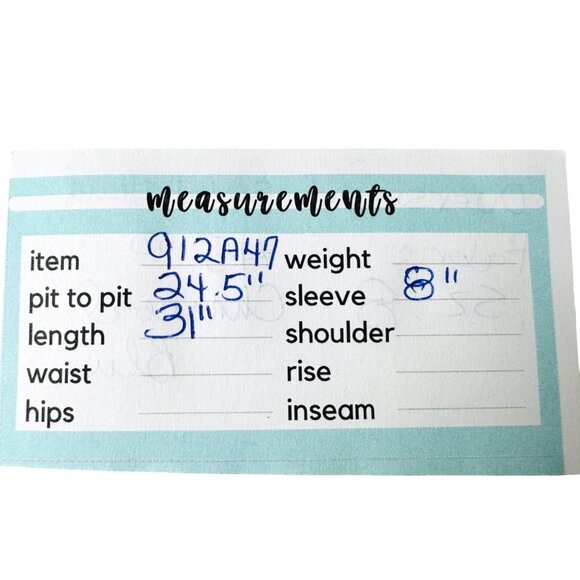 measurements
item 912A47 weight
pit to pit 24.5" sleeve 8"
length 31" shoulder
waist rise
hips inseam